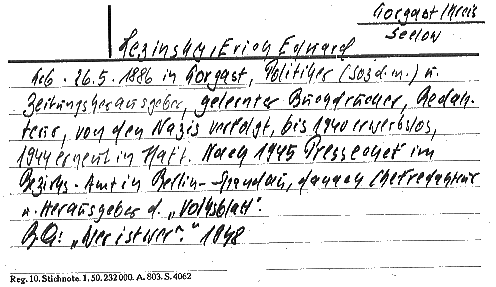 Gorgast/Kreis
Seelow
Lezinsky, Erich Eduard
Geb. 26.5.1886 in Gorgast, Politiker (Soz.d.m.) u.
Zeitungsherausgeber, gelernter Buchdrucker, Redak-
teur, von den Nazis verfolgt, bis 1940 erwerbslos,
1944 erneut in Haft. Nach 1945 Pressechef im
Bezirks-Amt in Berlin-Spandau, danach Chefredakteur
u. Herausgeber d. „Volksblatt".
BQ: „Wer ist wer?" 1948
Reg. 10. Stichnote. 1, 50. 232 000. A. 803. S. 4062